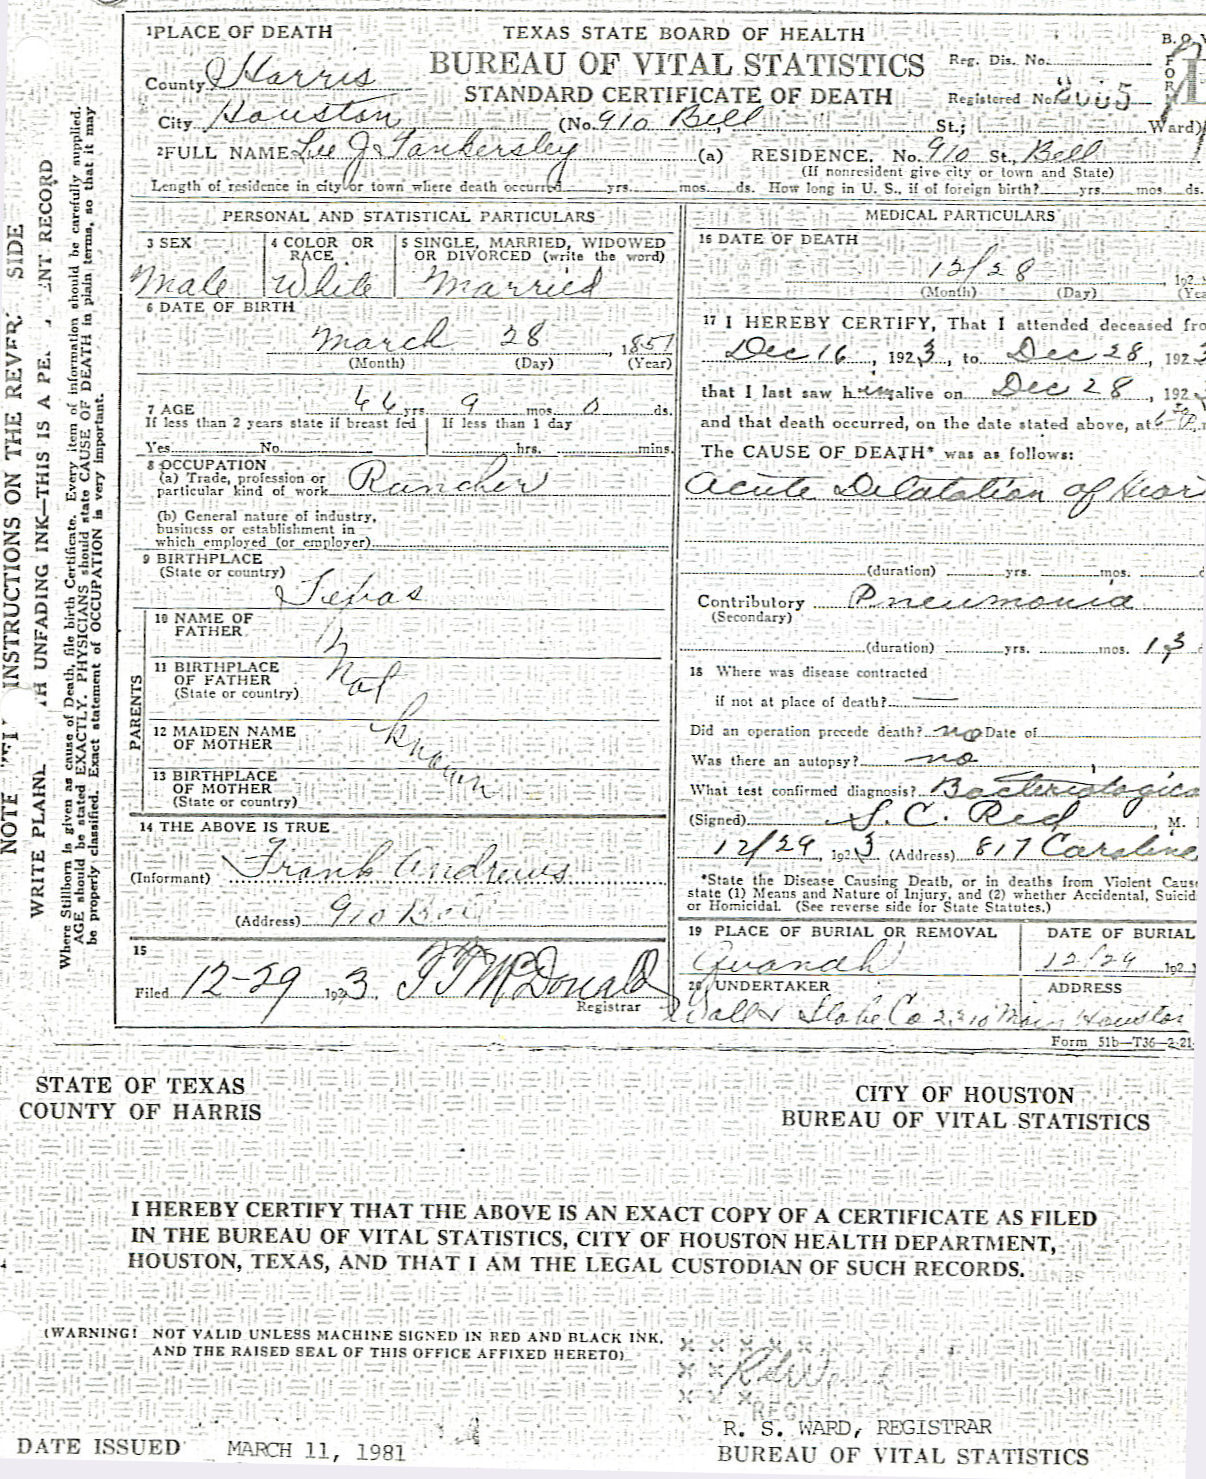 1 PLACE OF DEATH
TEXAS STATE BOARD OF HEALTH
BUREAU OF VITAL STATISTICS
STANDARD CERTIFICATE OF DEATH
Reg. Dis. No.
Registered No.
County Harris
City Houston (No. 910 Bell St.; Ward)
2 FULL NAME Lee J Tankersley (a) RESIDENCE. No. 910 St., Bell
(If nonresident give city or town and State)
Length of residence in city or town where death occurred yrs. mos. ds. How long in U. S., if of foreign birth? yrs. mos. ds.
PERSONAL AND STATISTICAL PARTICULARS
3 SEX
Male
4 COLOR OR RACE
White
5 SINGLE, MARRIED, WIDOWED
OR DIVORCED (write the word)
Married
6 DATE OF BIRTH
March 28, 1857
(Month) (Day) (Year)
7 AGE 66 yrs. 9 mos. 0 ds.
If less than 2 years state if breast fed If less than 1 day
Yes No hrs. mins.
8 OCCUPATION
(a) Trade, profession or
particular kind of work Rancher
(b) General nature of industry,
business or establishment in
which employed (or employer)
9 BIRTHPLACE
(State or country)
Texas
PARENTS
10 NAME OF
FATHER
11 BIRTHPLACE
OF FATHER
(State or country)
Not
12 MAIDEN NAME
OF MOTHER
known
13 BIRTHPLACE
OF MOTHER
(State or country)
14 THE ABOVE IS TRUE
(Informant) Frank Andrews
(Address) 910 Bell
15
Filed 12-29 1923. T T McDonald
Registrar
MEDICAL PARTICULARS
16 DATE OF DEATH
12/28, 192
(Month) (Day)
17 I HEREBY CERTIFY, That I attended deceased fro
Dec 16, 1923, to Dec 28, 1923
that I last saw him alive on Dec 28, 192
and that death occurred, on the date stated above, at
The CAUSE OF DEATH* was as follows:
Acute Dilatation of Hear
(duration) yrs. mos.
Contributory Pneumonia
(Secondary)
(duration) yrs. mos. 13
18 Where was disease contracted
if not at place of death? —
Did an operation precede death? no Date of
Was there an autopsy? no
What test confirmed diagnosis? Bacteriologica
(Signed) S. C. Red, M.
12/29, 1923 (Address) 817 Caroline
*State the Disease Causing Death, or in deaths from Violent Caus
state (1) Means and Nature of Injury, and (2) whether Accidental, Suicid
or Homicidal. (See reverse side for State Statutes.)
19 PLACE OF BURIAL OR REMOVAL
Quanah
DATE OF BURIAL
12/29 192
20 UNDERTAKER
ADDRESS
Wall & Stabe Co 2310 Main Houston
Form 51b—T36—2-21
NOTE INSTRUCTIONS ON THE REVER SIDE
WRITE PLAINL TH UNFADING INK—THIS IS A PE ENT RECORD
Where Stillborn is given as cause of Death, file birth Certificate. Every item of information should be carefully supplied.
AGE should be stated EXACTLY. PHYSICIANS should state CAUSE OF DEATH in plain terms, so that it may
be properly classified. Exact statement of OCCUPATION is very important.
STATE OF TEXAS
COUNTY OF HARRIS
CITY OF HOUSTON
BUREAU OF VITAL STATISTICS
I HEREBY CERTIFY THAT THE ABOVE IS AN EXACT COPY OF A CERTIFICATE AS FILED
IN THE BUREAU OF VITAL STATISTICS, CITY OF HOUSTON HEALTH DEPARTMENT,
HOUSTON, TEXAS, AND THAT I AM THE LEGAL CUSTODIAN OF SUCH RECORDS.
(WARNING! NOT VALID UNLESS MACHINE SIGNED IN RED AND BLACK INK,
AND THE RAISED SEAL OF THIS OFFICE AFFIXED HERETO)
R. S. WARD, REGISTRAR
BUREAU OF VITAL STATISTICS
DATE ISSUED MARCH 11, 1981